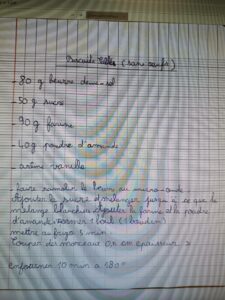 (sans oeufs)
- 80 g beurre demi-sel
- 50 g sucre
- 90 g farine
- 40 g poudre d'amande
- arôme vanille
- faire ramollir le beurre au micro-onde
Ajouter le sucre et mélanger jusqu'à ce que le
mélange blanchir Ajouter la farine et la poudre
d'amande. Former 1 boul (1 boudin)
mettre au frigo 5 min
Couper des morceau 0,5 cm épaisseur
Enfourner 10 min à 180°